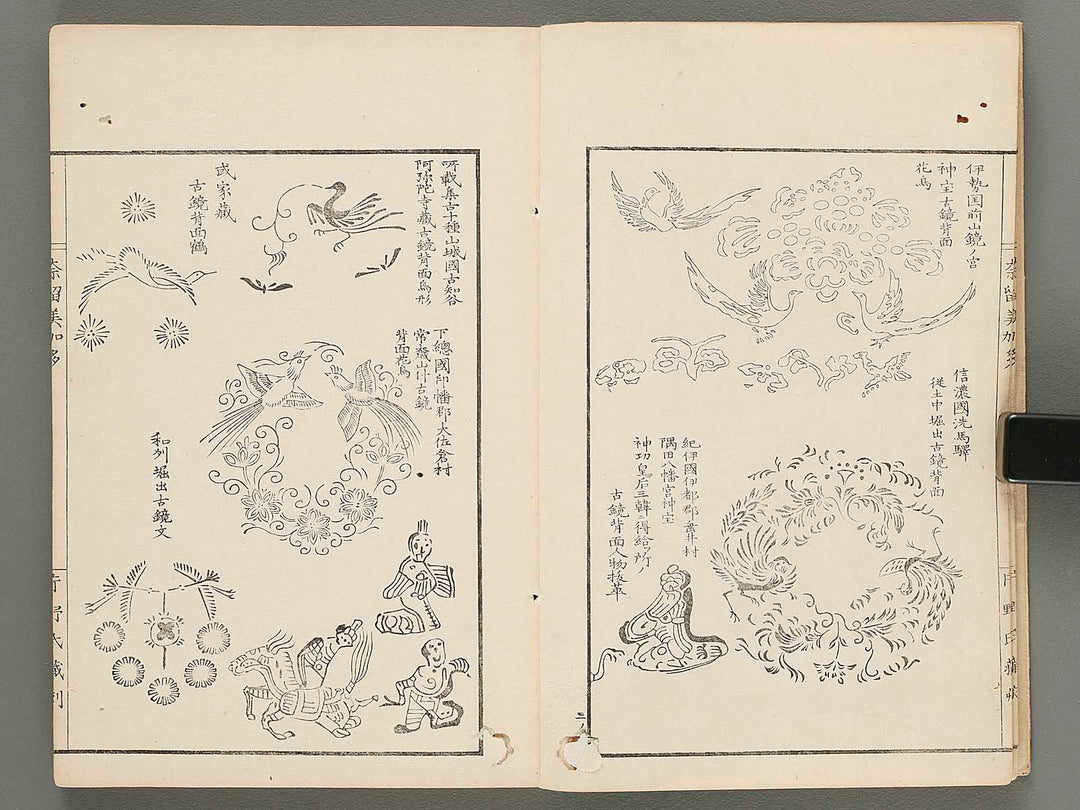 伊勢国前山鏡ノ宮
神宝古鏡背面
花鳥
信濃國洗馬驛
従土中堀出古鏡背面
紀伊國伊都郡
隅田八幡宮神宝
神功皇后三韓ニ得給フ所ノ
古鏡背面人物抜萃
所載集古十種山城國古知谷
阿弥陀寺蔵古鏡背面鳥形
或家蔵
古鏡背面鶴
下總國印幡郡大佐倉村
古鏡
背面花鳥
和州堀出古鏡文
奈留美加多
奈留美加多